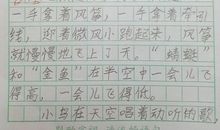 一手拿着风筝，一手拿着牵引
线，迎着微风小跑起来，风筝
就慢慢地飞上了天。“蜻蜓”
和“金鱼”在半空中一会儿飞
得高，一会儿飞得低。
小鸟在天空唱着动听的歌